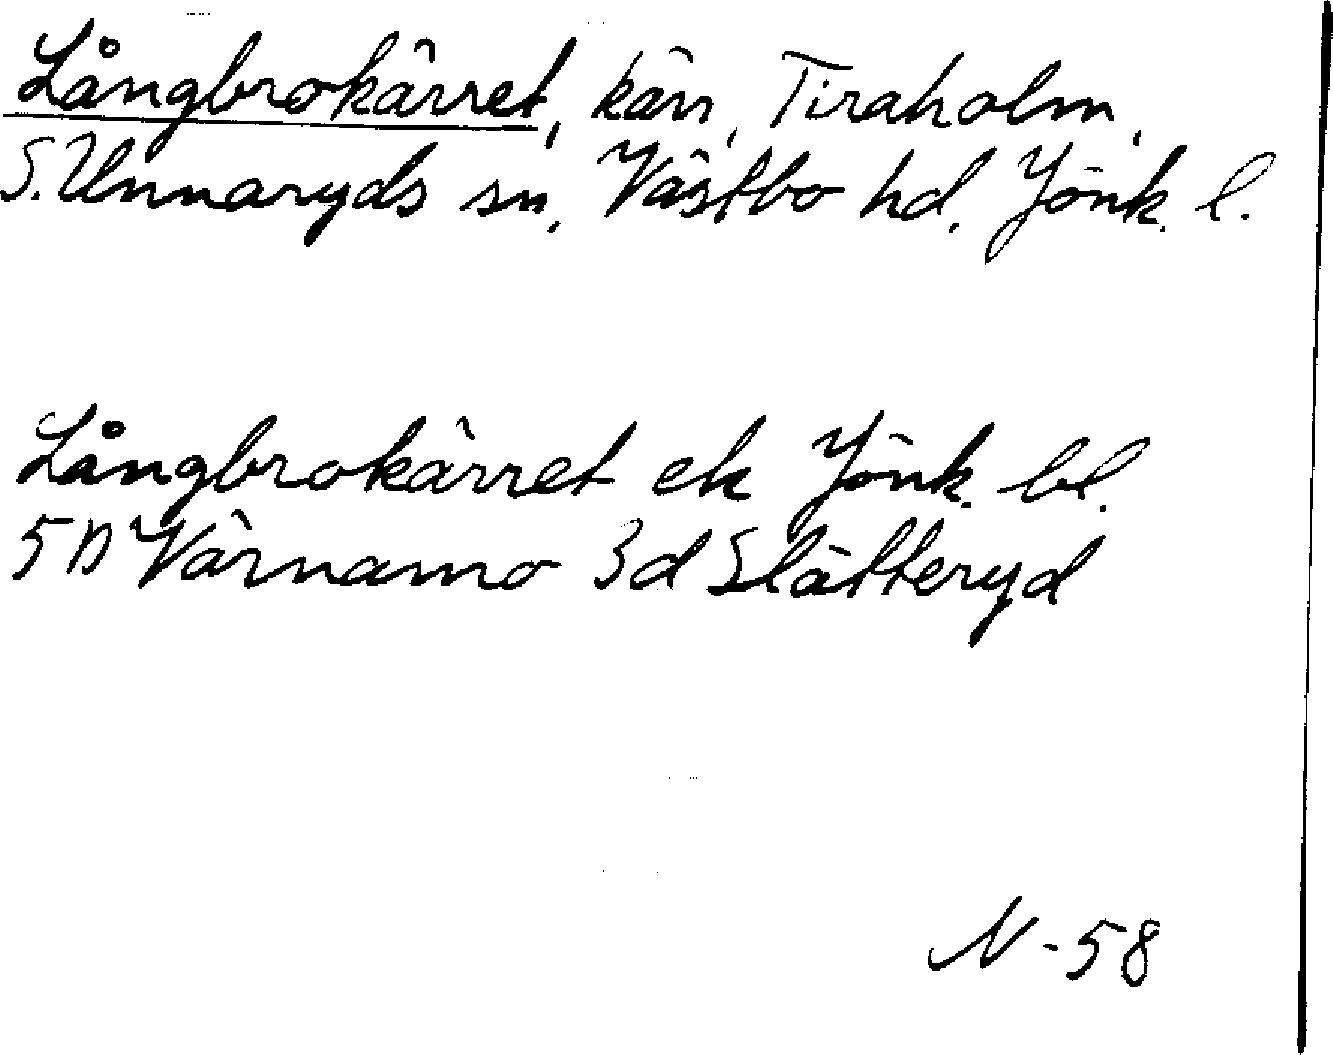 Långbrokärret, kärr, Tiraholm,
S. Unnaryds sn, Västbo hd, Jönk. l.
Långbrokärret ek Jönk. bl.
5D Värnamo 3d Slätteryd
N-58